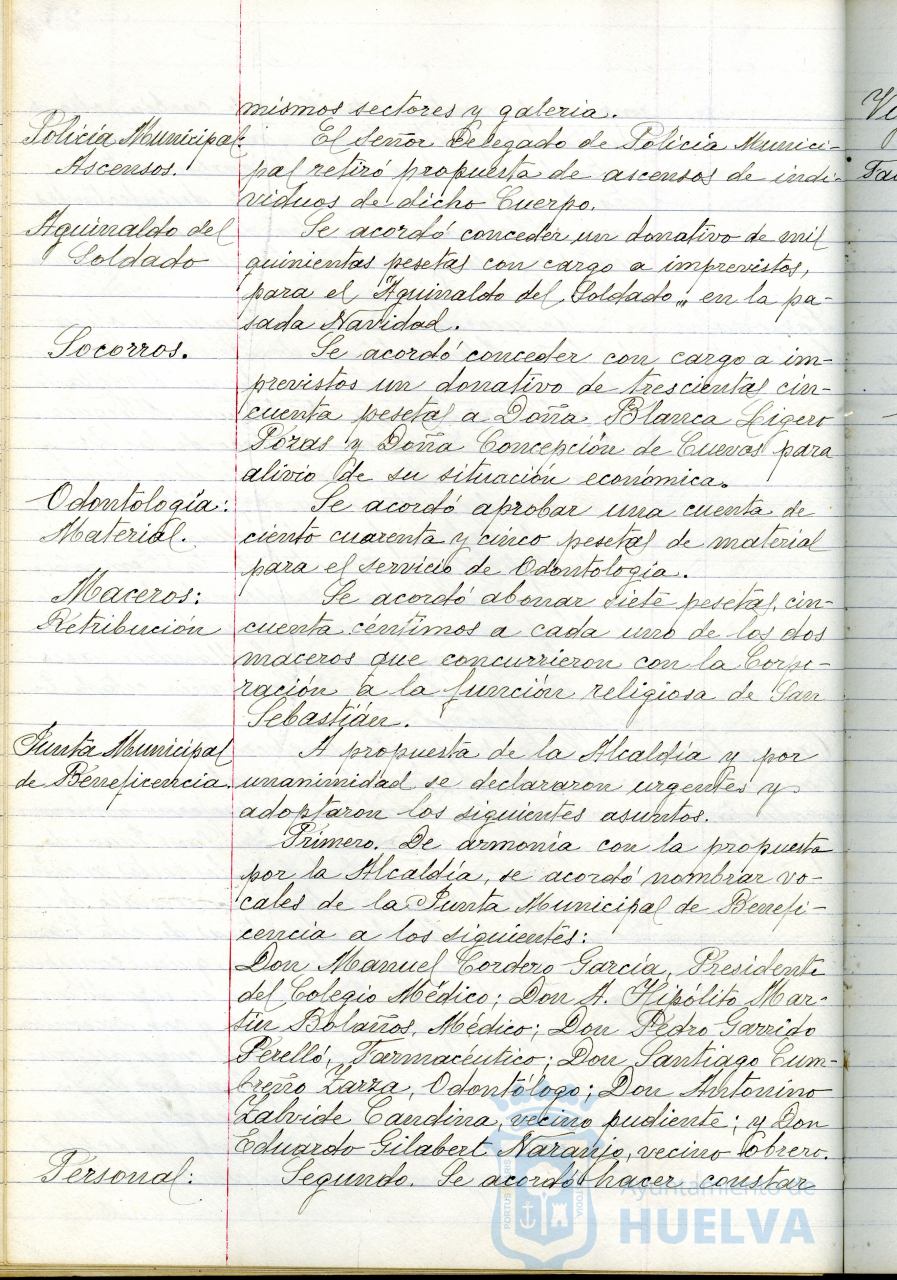 mismos sectores y galeria.
Policía Municipal:
Ascensos.
El Señor Delegado de Policía Munici-
pal retiró propuesta de ascensos de indi-
viduos de dicho Cuerpo.
Aguinaldo del
Soldado
Se acordó conceder un donativo de mil
quinientas pesetas con cargo a imprevistos,
para el "Aguinaldo del Soldado" en la pa-
sada Navidad.
Socorros.
Se acordó conceder con cargo a im-
previstos un donativo de trescientas cin-
cuenta pesetas a Doña Blanca Ligero
Pozas y Doña Concepción de Cuevas para
alivio de su situación económica.
Odontología:
Material.
Se acordó aprobar una cuenta de
ciento cuarenta y cinco pesetas de material
para el servicio de Odontología.
Maceros:
Retribución
Se acordó abonar siete pesetas, cin-
cuenta céntimos a cada uno de los dos
maceros que concurrieron con la Corpo-
ración a la función religiosa de San
Sebastián.
Junta Municipal
de Beneficencia.
A propuesta de la Alcaldía y por
unanimidad se declararon urgentes y
adoptaron los siguientes asuntos.
Primero. De armonía con la propuesta
por la Alcaldía, se acordó nombrar vo-
cales de la Junta Municipal de Benefi-
cencia a los siguientes:
Don Manuel Cordero García, Presidente
del Colegio Médico; Don A. Hipólito Mar-
tín Bolaños, Médico; Don Pedro Garrido
Perelló, Farmacéutico; Don Santiago Cum-
breño Zarza, Odontólogo; Don Antonino
Zalvide Candina, vecino pudiente; y Don
Eduardo Gilabert Naranjo, vecino obrero.
Personal:
Segundo. Se acordó hacer constar
Ayuntamiento de
HUELVA